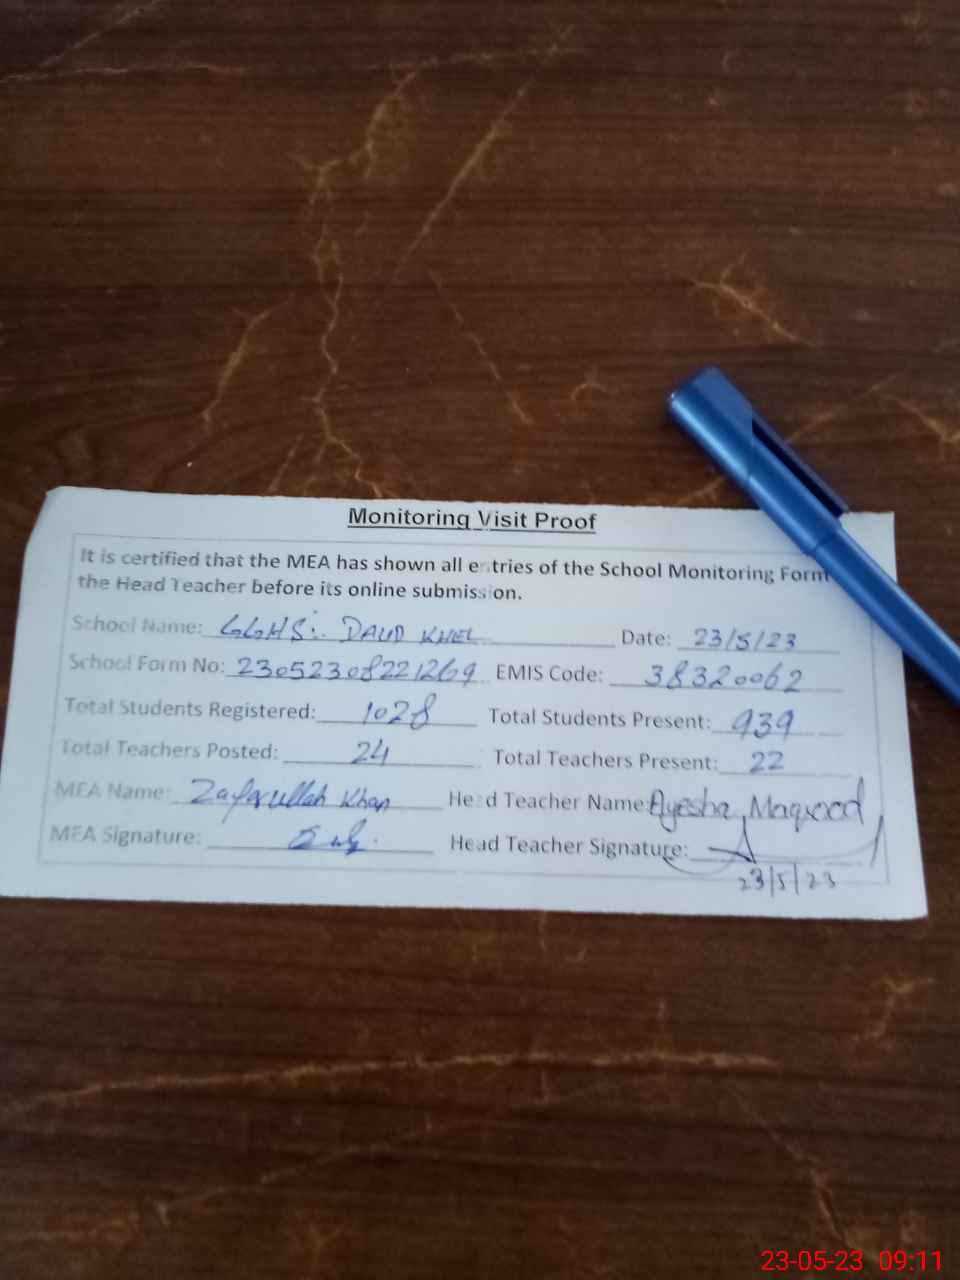 Monitoring Visit Proof
It is certified that the MEA has shown all entries of the School Monitoring Form
the Head Teacher before its online submission.
School Name: GGHS: DAUD KHEL Date: 23/5/23
School Form No: 23052308221269 EMIS Code: 38320062
Total Students Registered: 1028 Total Students Present: 939
Total Teachers Posted: 24 Total Teachers Present: 22
MEA Name: Zafarullah Khan Head Teacher Name: Ayesha Maqsood
MEA Signature: Head Teacher Signature:
23/5/23
23-05-23 09:11